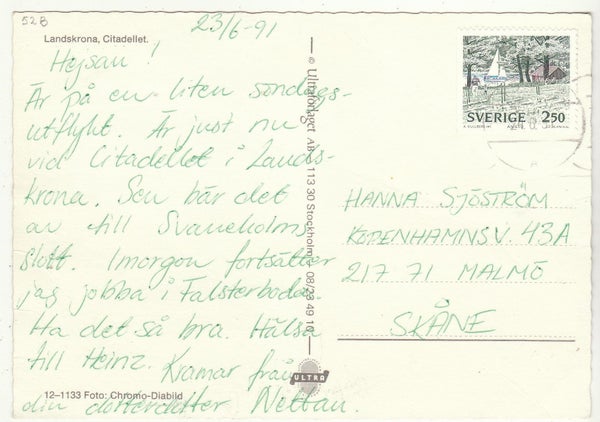 528
23/6-91
Landskrona, Citadellet.
Hejsan!
Är på en liten söndags-
utflykt. Är just nu
vid Citadellet i Lands-
krona. Sen bär det
av till Svaneholms
slott. Imorgon fortsätter
jag jobba i Falsterboda
Ha det så bra. Hälsa
till Heinz. Kramar från
din dotterdotter Nettan.
12–1133 Foto: Chromo-Diabild
© Ultraförlaget AB – 113 30 Stockholm – 08/23 49 10
ULTRA
SVERIGE 250
HANNA SJÖSTRÖM
KÖPENHAMNSV. 43A
217 71 MALMÖ
SKÅNE